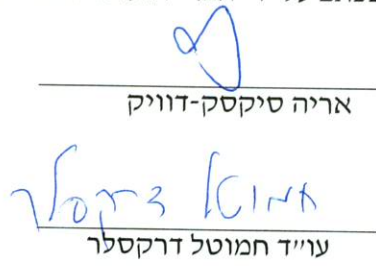 אריה סיקסק-דוויק
חמוטל דרקסלר
עו״ד חמוטל דרקסלר